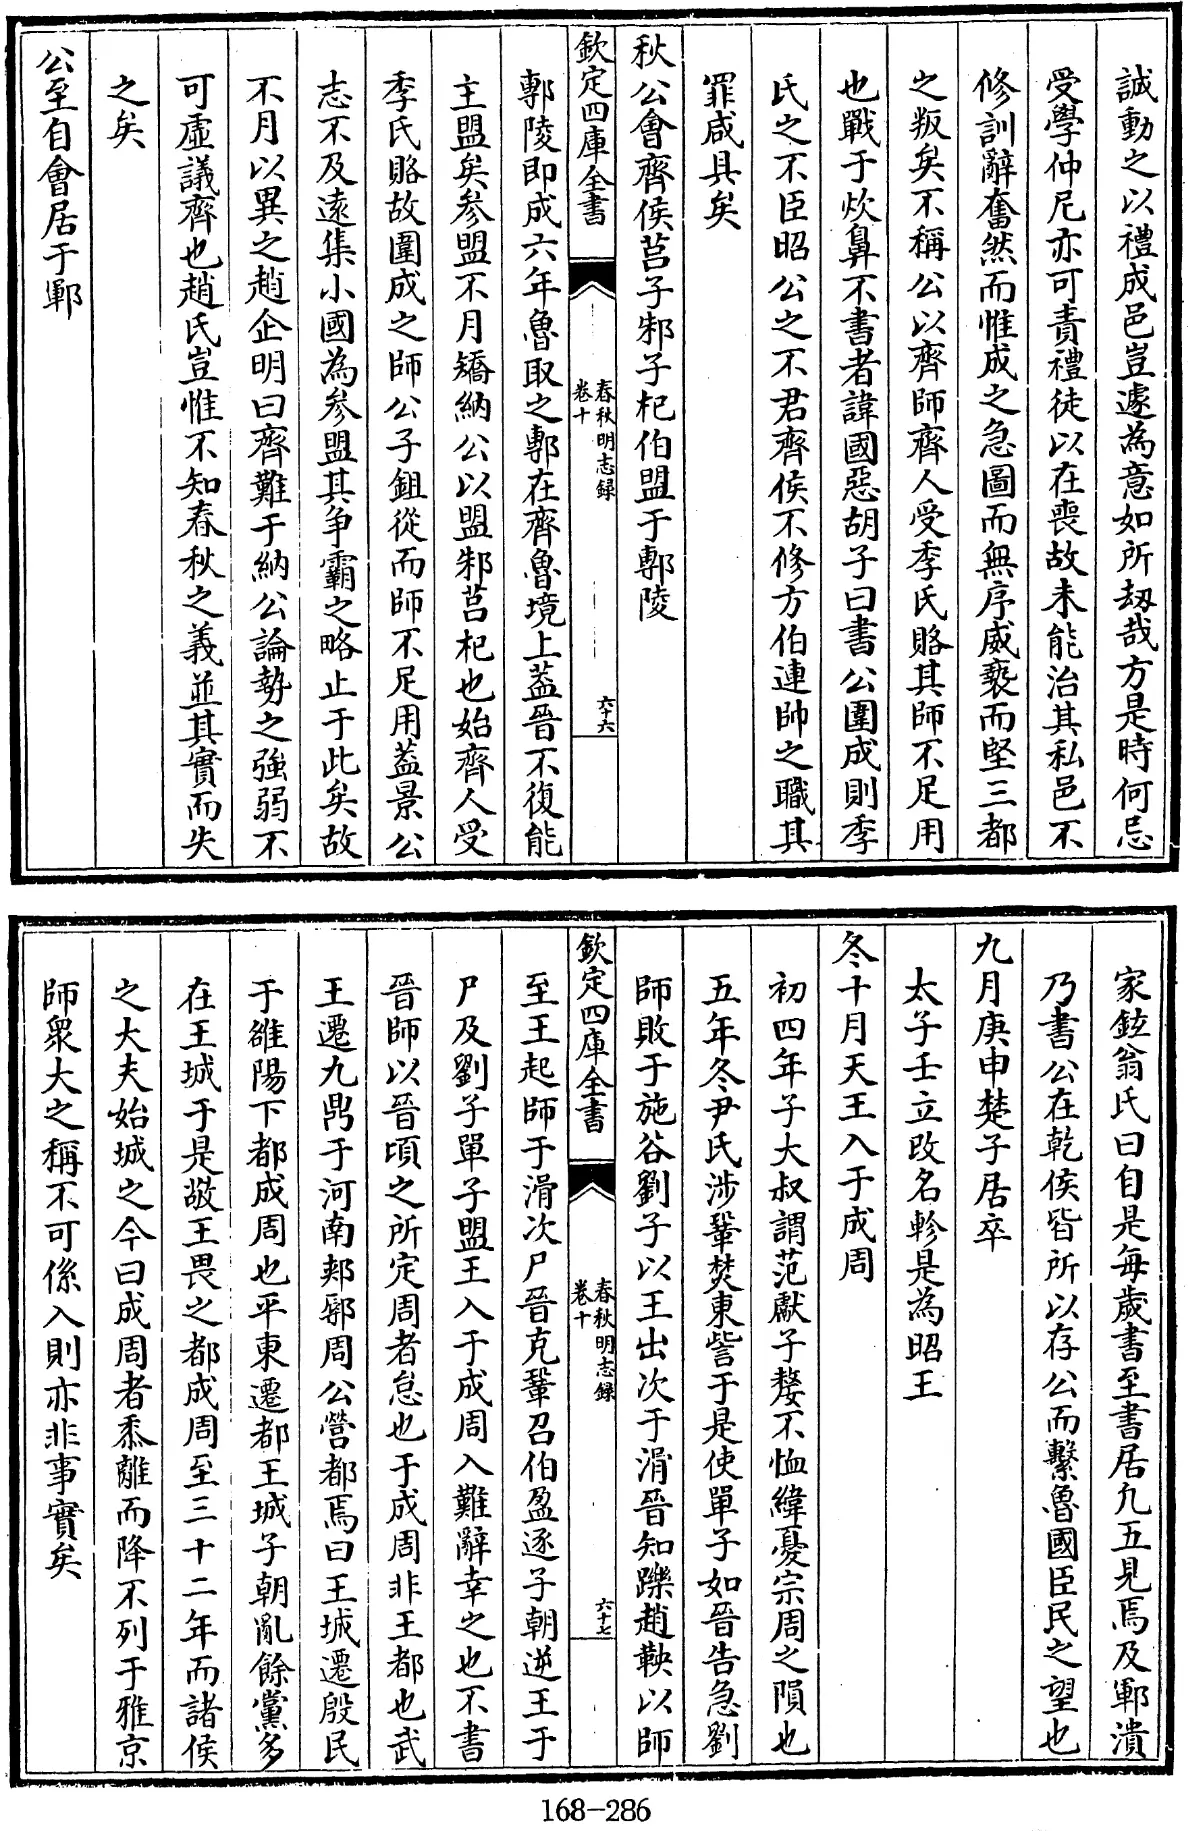 誠動之以禮成邑豈遽為意如所刼哉方是時何忌
受學仲尼亦可責禮徒以在喪故未能治其私邑不
修訓辭奮然而惟成之急圖而無序威䙝而堅三都
之叛矣不稱公以齊師齊人受季氏賂其師不足用
也戰于炊鼻不書者諱國惡胡子曰書公圍成則季
氏之不臣昭公之不君齊侯不修方伯連帥之職其
罪咸具矣
秋公會齊侯莒子邾子杞伯盟于鄟陵
欽定四庫全書
春秋明志録
卷十
六十六
鄟陵即成六年魯取之鄟在齊魯境上蓋晉不復能
主盟矣参盟不月矯納公以盟邾莒杞也始齊人受
季氏賂故圍成之師公子鉏從而師不足用蓋景公
志不及逺集小國為参盟其争霸之略止于此矣故
不月以異之趙企明曰齊難于納公論勢之強弱不
可虛議齊也趙氏豈惟不知春秋之義並其實而失
之矣
公至自會居于鄆
家鉉翁氏曰自是每歲書至書居凢五見焉及鄆潰
乃書公在乾侯皆所以存公而繫魯國臣民之望也
九月庚申楚子居卒
太子壬立改名軫是為昭王
冬十月天王入于成周
初四年子大叔謂范獻子嫠不恤緯憂宗周之隕也
五年冬尹氏涉鞏焚東訾于是使單子如晉告急劉
師敗于施谷劉子以王出次于滑晉知躒趙鞅以師
欽定四庫全書
春秋明志録
卷十
六十七
至王起師于滑次尸晉克鞏召伯盈逐子朝逆王于
尸及劉子單子盟王入于成周入難辭幸之也不書
晉師以晉頃之所定周者怠也于成周非王都也武
王遷九鼎于河南郟鄏周公營都焉曰王城遷殷民
于雒陽下都成周也平東遷都王城子朝亂餘黨多
在王城于是敬王畏之都成周至三十二年而諸侯
之大夫始城之今曰成周者黍離而降不列于雅京
師衆大之稱不可係入則亦非事實矣
168-286